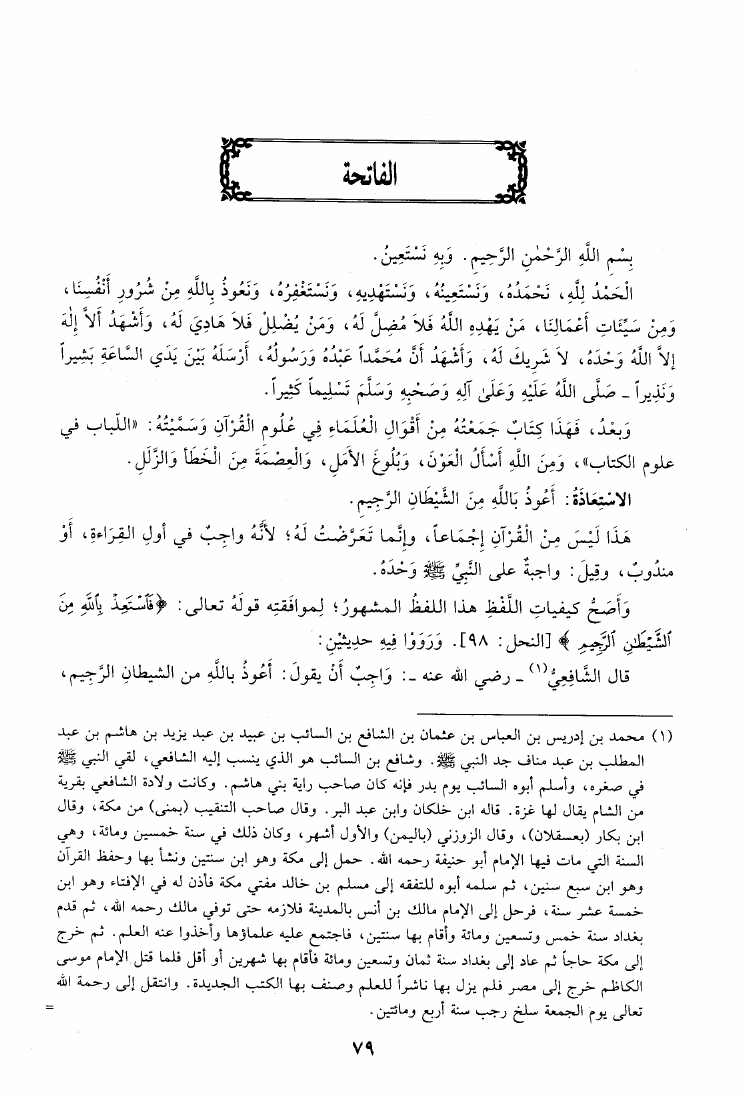 الفاتحة
بِسْمِ اللَّهِ الرَّحْمٰنِ الرَّحِيمِ. وَبِهِ نَسْتَعِينُ.
الْحَمْدُ لِلَّهِ، نَحْمَدُهُ، وَنَسْتَعِينُهُ، وَنَسْتَهْدِيهِ، وَنَسْتَغْفِرُهُ، وَنَعُوذُ بِاللَّهِ مِنْ شُرُورِ أَنْفُسِنَا،
وَمِنْ سَيِّئَاتِ أَعْمَالِنَا، مَنْ يَهْدِهِ اللَّهُ فَلاَ مُضِلَّ لَهُ، وَمَنْ يُضْلِلْ فَلاَ هَادِيَ لَهُ، وَأَشْهَدُ أَلاَّ إِلَهَ
إلاَّ اللَّهُ وَحْدَهُ، لاَ شَرِيكَ لَهُ، وَأَشْهَدُ أَنَّ مُحَمَّداً عَبْدُهُ وَرَسُولُهُ، أَرْسَلَهُ بَيْنَ يَدَيِ السَّاعَةِ بَشِيراً
وَنَذِيراً ـ صَلَّى اللَّهُ عَلَيْهِ وَعَلَىٰ آلِهِ وَصَحْبِهِ وَسَلَّمَ تَسْلِيماً كَثِيراً.
وَبَعْدُ، فَهَذَا كِتَابٌ جَمَعْتُهُ مِنْ أَقْوَالِ الْعُلَمَاءِ فِي عُلُومِ الْقُرْآنِ وَسَمَّيْتُهُ: «اللّباب في
علوم الكتاب»، وَمِنَ اللَّهِ أَسْأَلُ الْعَوْنَ، وَبُلُوغَ الأَمَلِ، وَالْعِصْمَةَ مِنَ الْخَطَأ وَالزَّلَلِ.
الاسْتِعَاذَةُ: أَعُوذُ بَاللَّهِ مِنَ الشَّيْطَانِ الرَّجِيمِ.
هَذَا لَيْسَ مِنَ الْقُرْآنِ إِجْمَاعاً، وإِنَّما تَعَرَّضْتُ لَهُ؛ لأَنَّهُ واجِبٌ في أولِ القِرَاءةِ، أَوْ
مندُوبٌ، وقِيلَ: واجبةٌ على النَّبِيِّ ﷺ وَحْدَهُ.
وَأَصَحُّ كيفياتِ اللَّفْظِ هذا اللفظُ المشهورُ؛ لِموافقتِه قولَهُ تعالى: ﴿فَٱسْتَعِذْ بِٱللَّهِ مِنَ
ٱلشَّيْطَٰنِ ٱلرَّجِيمِ﴾ [النحل: ٩٨]. وَرَوَوْا فِيهِ حديثَيْنِ:
قال الشَّافِعِيُّ(١) ـ رضي الله عنه ـ: وَاجِبٌ أَنْ يقولَ: أَعُوذ باللَّهِ من الشيطانِ الرَّجيم،
(١) محمد بن إدريس بن العباس بن عثمان بن الشافع بن السائب بن عبيد بن عبد يزيد بن هاشم بن عبد
المطلب بن عبد مناف جد النبي ﷺ. وشافع بن السائب هو الذي ينسب إليه الشافعي، لقي النبي ﷺ
في صغره، وأسلم أبوه السائب يوم بدر فإنه كان صاحب راية بني هاشم. وكانت ولادة الشافعي بقرية
من الشام يقال لها غزة. قاله ابن خلكان وابن عبد البر. وقال صاحب التنقيب (بمنى) من مكة، وقال
ابن بكار (بعسقلان)، وقال الزوزني (باليمن) والأول أشهر، وكان ذلك في سنة خمسين ومائة، وهي
السنة التي مات فيها الإمام أبو حنيفة رحمه الله. حمل إلى مكة وهو ابن سنتين ونشأ بها وحفظ القرآن
وهو ابن سبع سنين، ثم سلمه أبوه للتفقه إلى مسلم بن خالد مفتي مكة فأذن له في الإفتاء وهو ابن
خمسة عشر سنة، فرحل إلى الإمام مالك بن أنس بالمدينة فلازمه حتى توفي مالك رحمه الله، ثم قدم
بغداد سنة خمس وتسعين ومائة وأقام بها سنتين، فاجتمع عليه علماؤها وأخذوا عنه العلم. ثم خرج
إلى مكة حاجاً ثم عاد إلى بغداد سنة ثمان وتسعين ومائة فأقام بها شهرين أو أقل فلما قتل الإمام موسى
الكاظم خرج إلى مصر فلم يزل بها ناشراً للعلم وصنف بها الكتب الجديدة. وانتقل إلى رحمة الله
تعالى يوم الجمعة سلخ رجب سنة أربع ومائتين. =
٧٩